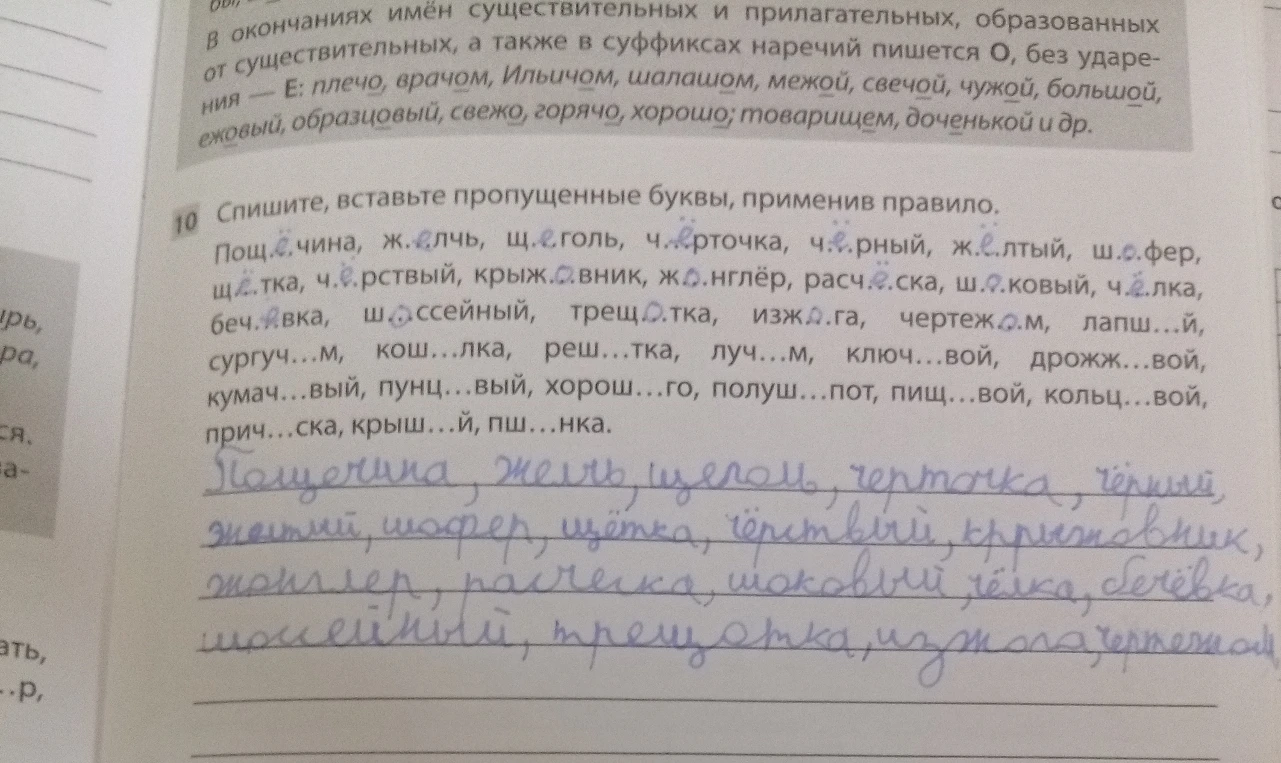 В окончаниях имён существительных и прилагательных, образованных
от существительных, а также в суффиксах наречий пишется О, без ударе-
ния — Е: плечо, врачом, Ильичом, шалашом, межой, свечой, чужой, большой,
ежовый, образцовый, свежо, горячо, хорошо; товарищем, доченькой и др.
10 Спишите, вставьте пропущенные буквы, применив правило.
Пощ.ё.чина, ж.елчь, щ.еголь, ч..ёрточка, ч.ё.рный, ж.ё.лтый, ш.о.фер,
щё.тка, ч.ё.рствый, крыж.о.вник, жо.нглёр, расч.ё.ска, ш.о.ковый, ч.ё.лка,
беч.ёвка, шоссейный, трещо.тка, изжо.га, чертежо.м, лапш...й,
сургуч...м, кош...лка, реш...тка, луч...м, ключ...вой, дрожж...вой,
кумач...вый, пунц...вый, хорош...го, полуш...пот, пищ...вой, кольц...вой,
прич...ска, крыш...й, пш...нка.
Пощечина, желчь, щеголь, черточка, чёрный,
желтый, шофер, щётка, чёрствый, крыжовник,
жонглер, расческа, шоковый, чёлка, бечёвка,
шоссейный, трещотка, изжога, чертежом
ирь,
ра,
ся.
а-
ать,
..р,